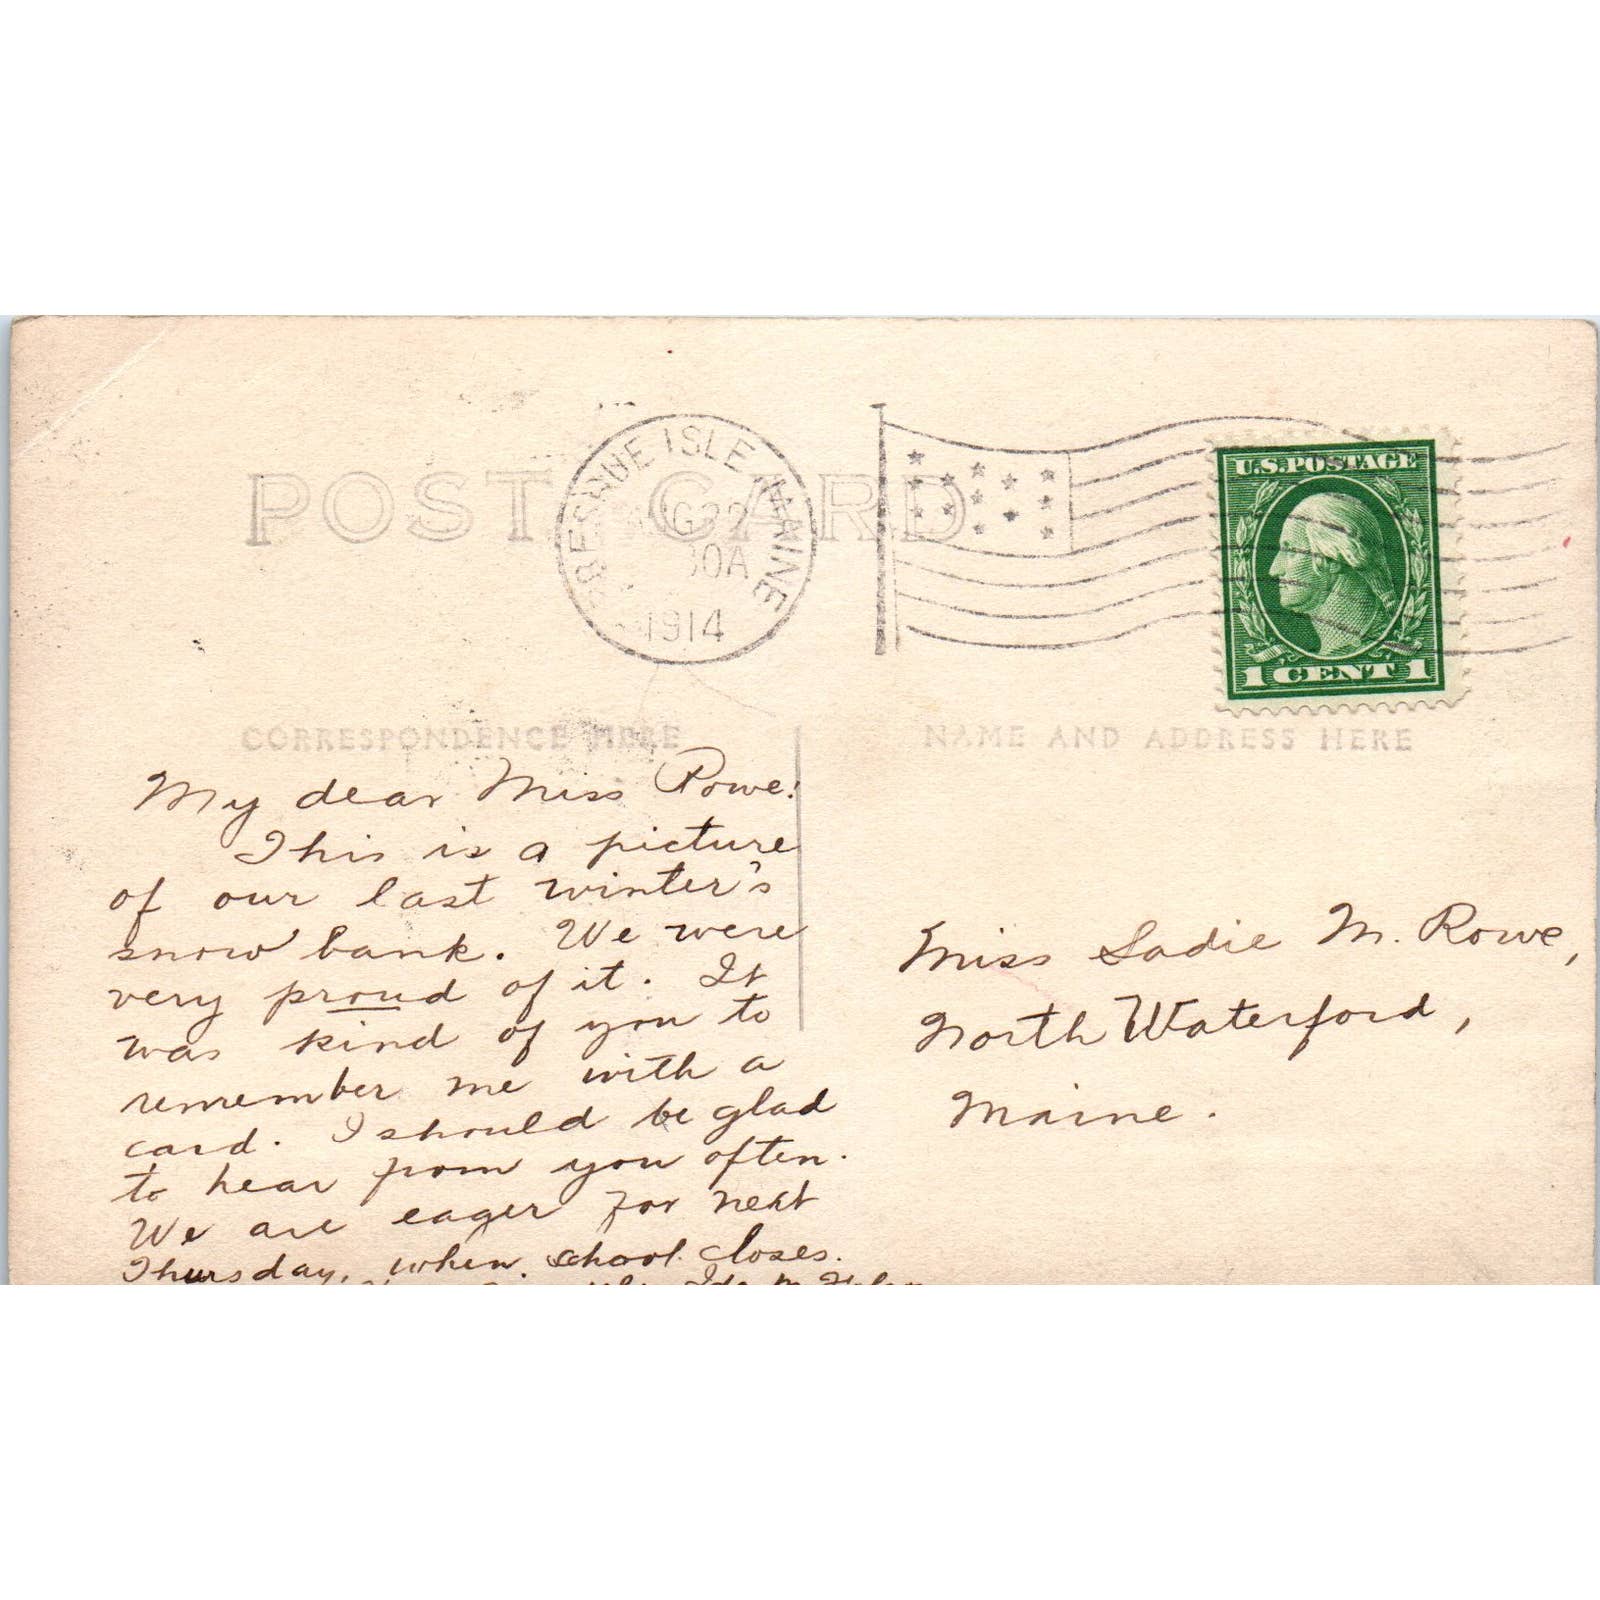 POST CARD
PRESQUE ISLE MAINE
AUG 22
30A
1914
U.S. POSTAGE
1 CENT 1
CORRESPONDENCE HERE
NAME AND ADDRESS HERE
My dear Miss Rowe:
This is a picture
of our last winter's
snow bank. We were
very proud of it. It
was kind of you to
remember me with a
card. I should be glad
to hear from you often.
We are eager for next
Thursday, when school closes.
Miss Sadie M. Rowe,
North Waterford,
Maine.